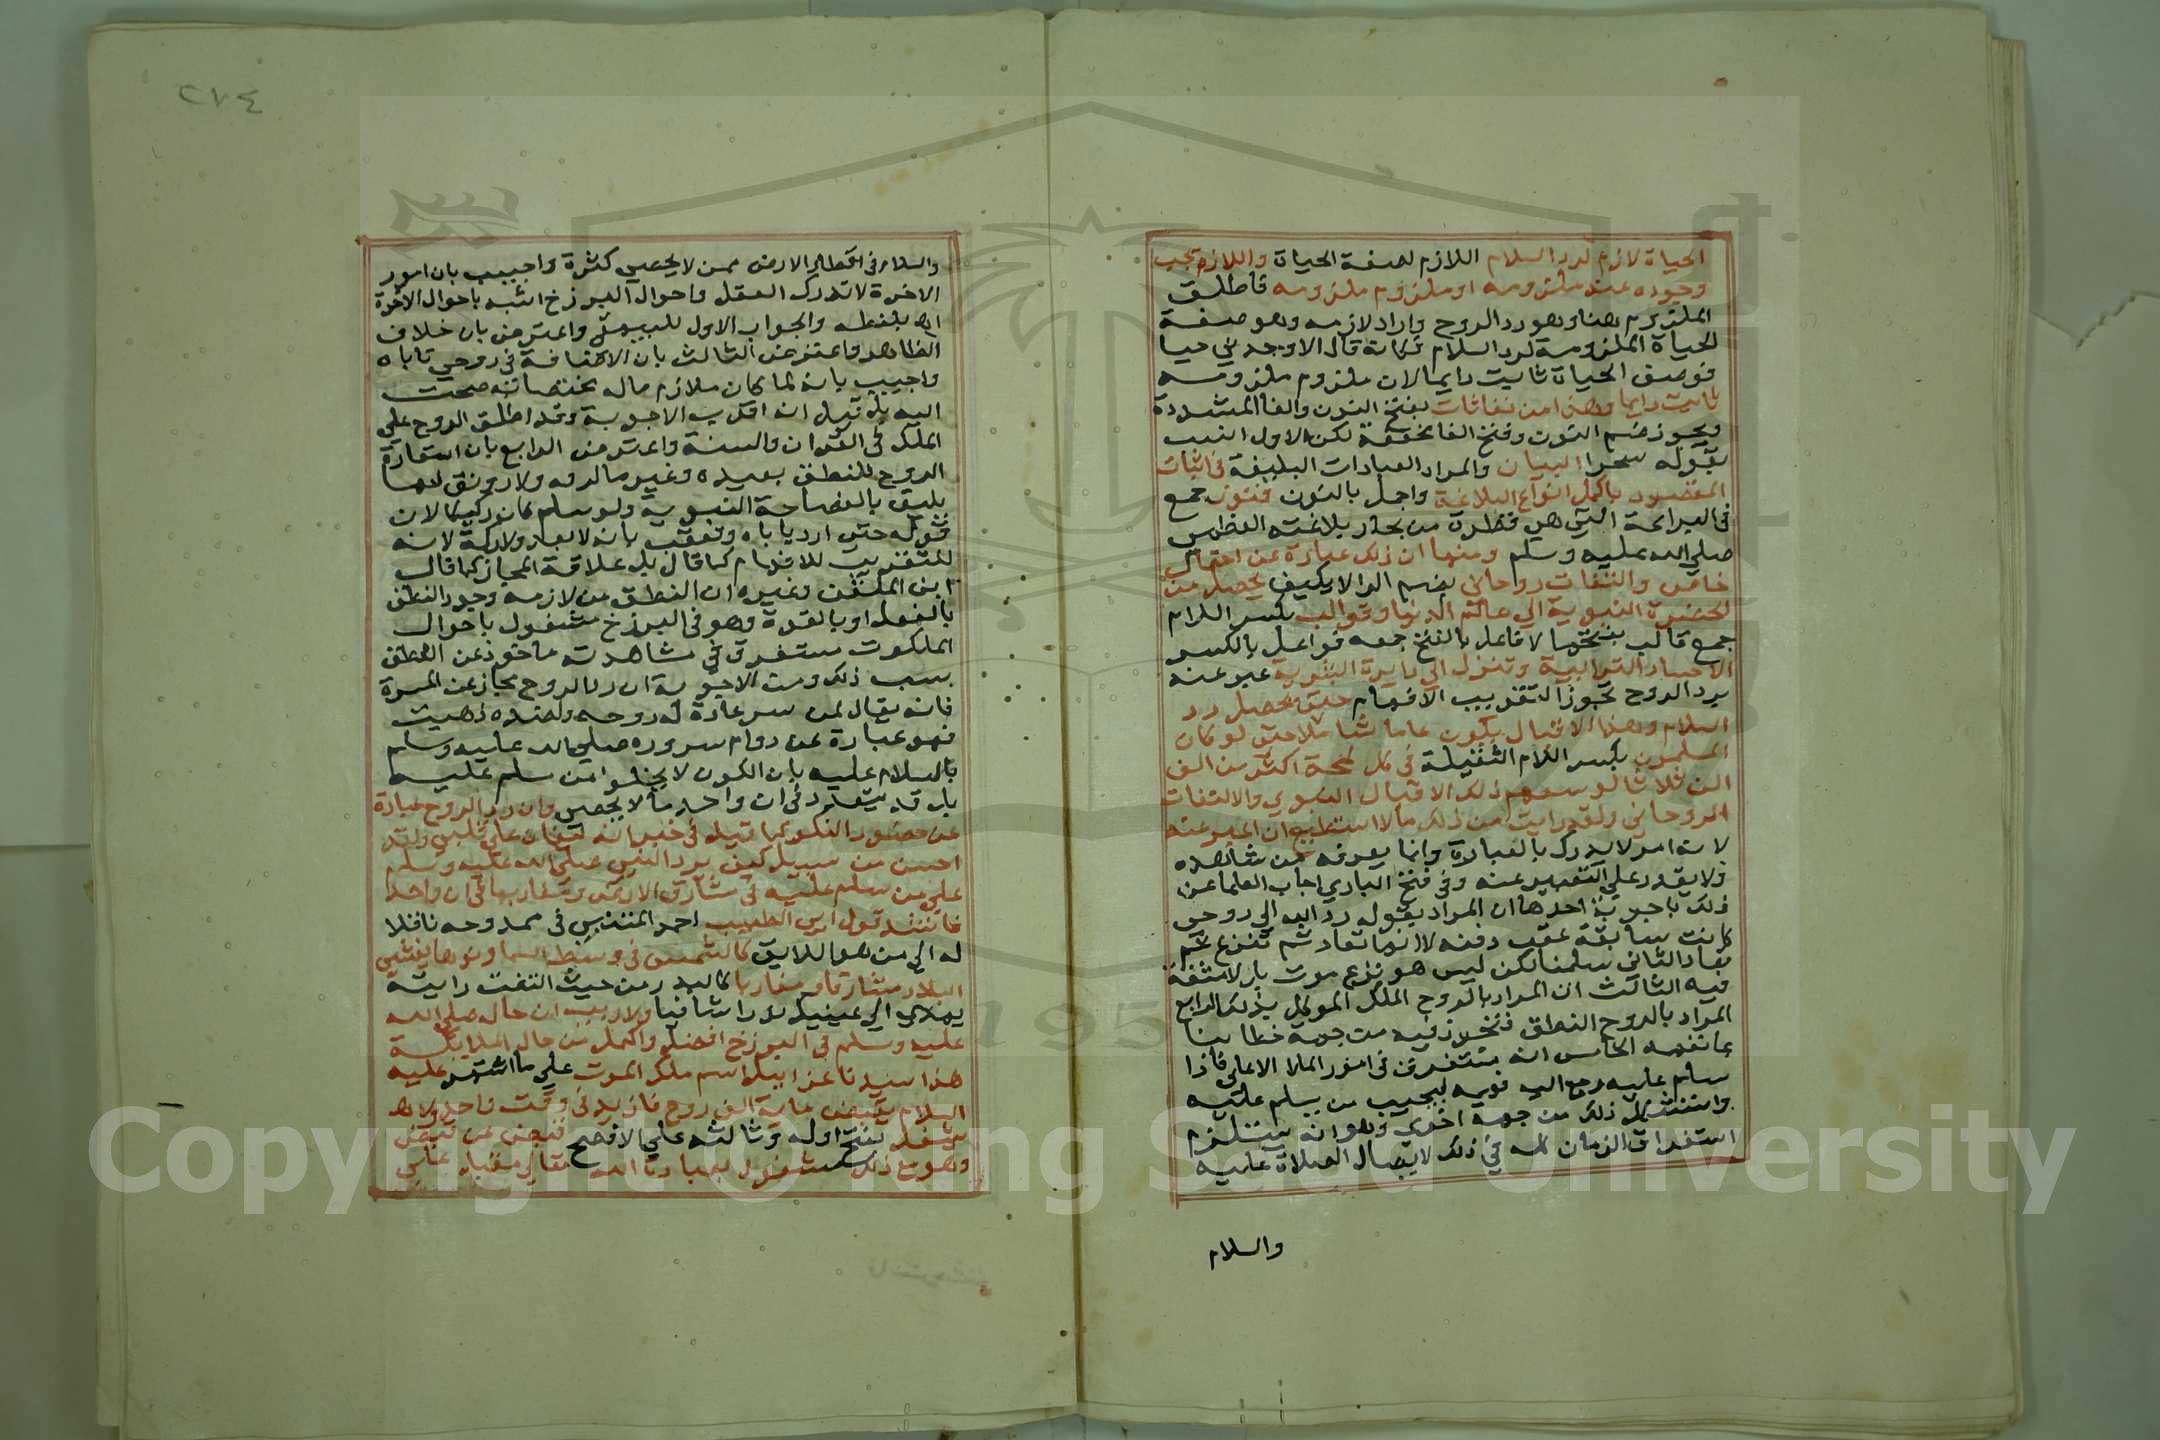 الحياة لازم لرد السلام اللازم لصفة الحياة واللازم يجب
وجوده عند ملزومه او ملزوم ملزومه فاطلق
الملزوم هنا وهو رد الروح واراد لازمه وهو صفة
الحياة الملزومة لرد السلام فكانه قال الا وجدني حيا
فوصف الحياة ثابت دايما لان ملزوم ملزومه
ثابت دايما وهذا من نفاثات بفتح النون والفا المشددة
ويجوز ضم النون وفتح الفا مخففة لكن الاول انسب
بقوله سحر البيان والمراد العبارات البليغة في اثبات
المقصود باكمل انواع البلاغة واجمل بالنون فنون جمع
فن البراعة التي هي قطرة من بحار بلاغته العظمى
صلى الله عليه وسلم ومنها ان ذلك عبارة عن اقبال
خاص والتفات روحاني بضم الرا لا يكيف يحصل من
الحضرة النبوية الى عالم الدنيا وقوالب بكسر اللام
جمع قالب بفتحها لا فاعل بالفتح جمعه فواعل بالكسر
الاجساد الترابية وتنزل الى دايرة البشرية عبر عنه
برد الروح تجوز التقريب الافهام حتى يحصل رد
السلام وهذا الاقبال يكون عاما شاملا حتى لو كان
المسلمون بكسر اللام الثقيلة في كل لمحة اكثر من الف
الف فلاثا لوسعهم ذلك الاقبال النبوي والالتفات
الروحاني ولقد رايت من ذلك ما لا استطيع ان اعبر عنه
لانه امر لا يدرك بالعبارة وانما يعرفه من شاهده
ولا يقدر على التعبير عنه وفي فتح الباري اجاب العلما عن
ذلك باجوبة احدها ان المراد بقوله رد الله الي روحي
كانت سابقة عقب دفنه لا انها تعاد ثم تنزع ثم
تعاد الثاني سلمنا لكن ليس هو نزع موت بل لا مشقة
فيه الثالث ان المراد بالروح الملك الموكل بذلك الرابع
المراد بالروح النطق فتجوز فيه من جهة خطابنا
بما نفهمه الخامس انه يستغرق في امور الملا الاعلى فاذا
سلم عليه رجع اليه فهمه ليجيب من يسلم عليه
واستشكل ذلك من جهة اخرى وهو انه يستلزم
استغراق الزمان كله في ذلك لاتصال الصلاة عليه
والسلام
٢٧٤
والسلام في اقطار الارض ممن لا يحصى كثرة واجيب بان امور
الاخرة لا تدرك العقل واحوال البرزخ اشبه باحوال الاخرة
اه بلفظه والجواب الاول للبيهقي واعترض بان خلاف
الظاهر واعترض الثالث بان الاضافة في روحي تاباه
واجيب بانه لما كان ملازم ماله بختصانه صحت
اليه بل قيل انه اقرب الاجوبة وقد اطلق الروح على
الملك في القران والسنة واعترض الرابع بان استعارة
الروح للنطق بعيده وغير مالوفه ولا رونق لها
يليق بالفصاحة النبوية ولو سلم كان ركيكا لان
قوله حتى ارد ياباه وتعقب بانه لا بعد ولا ركة لانه
للتقريب للافهام كما قال بل علاقة المجاز كما قال
ابن الملقن وغيره ان النطق من لازمه وجود النطق
بالفعل او بالقوة وهو في البرزخ مشغول باحوال
الملكوت مستغرق في مشاهدته ماخوذ عن النطق
بسبب ذلك ومن الاجوبة ان رد الروح مجاز عن المسرة
فانه يقال لمن سر عادة له روحه ولضده ذهبت
فهو عبارة عن دوام سروره صلى الله عليه وسلم
بالسلام عليه بان الكون لا يخلوا من سلم عليه
بل قد يتعدد في ان واحد ما لا يحصى وان رد الروح عبارة
عن حضور الفكر كما قيل في خبر انه ليغان على قلبي ولقد
احسن من سيل كيف يرد النبي صلى الله عليه وسلم
على من سلم عليه في مشارق الارض ومغاربها في ان واحد
فانشد قول ابي الطيب احمد المتنبي في ممدوحه نافلا
له الى من هو اللايق كالشمس في وسط السما ونورها يغشى
البلاد مشارقا ومغاربا كالبدر من حيث التفت رايته
يهدي الى عينيك نورا ثاقبا ولا ريب ان حاله صلى الله
عليه وسلم في البرزخ افضل واكمل من حال الملايكة
هذا سيدنا عزرائيل اسم ملك الموت على ما اشتهر عليه
السلام يقبض ماية الف روح فازيد في وقت واحد ولا
يشغله بفتح اوله وثالثه على الافصح قبض عن قبض
وهو مع ذلك مشغول بعبادة الله تعالى مقبل على